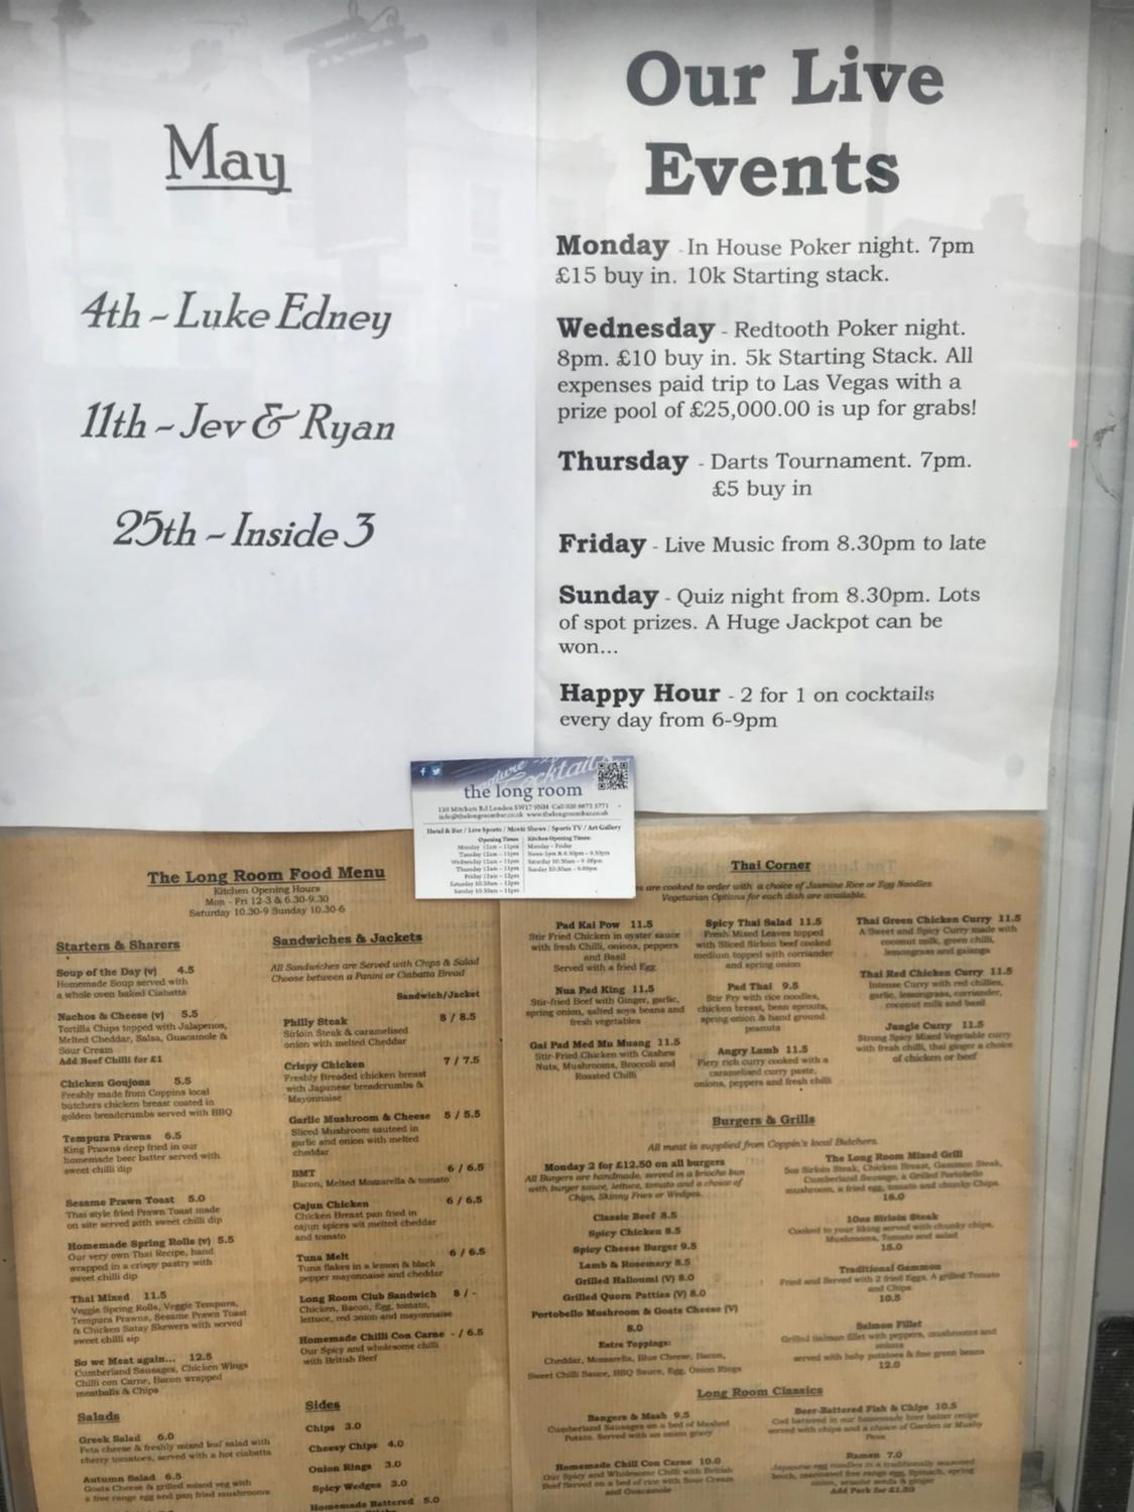 May
4th ~ Luke Edney
11th ~ Jev & Ryan
25th ~ Inside 3
Our Live
Events
Monday - In House Poker night. 7pm
£15 buy in. 10k Starting stack.
Wednesday - Redtooth Poker night.
8pm. £10 buy in. 5k Starting Stack. All
expenses paid trip to Las Vegas with a
prize pool of £25,000.00 is up for grabs!
Thursday - Darts Tournament. 7pm.
£5 buy in
Friday - Live Music from 8.30pm to late
Sunday - Quiz night from 8.30pm. Lots
of spot prizes. A Huge Jackpot can be
won...
Happy Hour - 2 for 1 on cocktails
every day from 6-9pm
Cocktail
the long room
Hotel & Bar / Live Sports / Music Shows / Sports TV / Art Gallery
Opening Times Kitchen Opening Times
The Long Room Food Menu
Kitchen Opening Hours
Mon - Fri 12-3 & 6.30-9.30
Saturday 10.30-9 Sunday 10.30-6
Starters & Sharers
Soup of the Day (v) 4.5
Homemade Soup served with
a whole oven baked Ciabatta
Nachos & Cheese (v) 5.5
Tortilla Chips topped with Jalapenos,
Melted Cheddar, Salsa, Guacamole &
Sour Cream
Add Beef Chilli for £1
Chicken Goujons 5.5
Freshly made from Coppins local
butchers chicken breast coated in
golden breadcrumbs served with BBQ
Tempura Prawns 6.5
King Prawns deep fried in our
homemade beer batter served with
sweet chilli dip
Sesame Prawn Toast 5.0
Thai style fried Prawn Toast made
on site served with sweet chilli dip
Homemade Spring Rolls (v) 5.5
Our very own Thai Recipe, hand
wrapped in a crispy pastry with
sweet chilli dip
Thai Mixed 11.5
Veggie Spring Rolls, Veggie Tempura,
Tempura Prawns, Sesame Prawn Toast
& Chicken Satay Skewers with served
sweet chilli sip
So we Meat again... 12.5
Cumberland Sausages, Chicken Wings
Chilli con Carne, Bacon wrapped
meatballs & Chips
Salads
Greek Salad 6.0
Feta cheese & freshly mixed leaf salad with
cherry tomatoes, served with a hot ciabatta
Autumn Salad 6.5
Goats Cheese & grilled mixed veg with
a free range egg and pan fried mushrooms
Sandwiches & Jackets
All Sandwiches are Served with Chips & Salad
Choose between a Panini or Ciabatta Bread
Sandwich/Jacket
Philly Steak 8 / 8.5
Sirloin Steak & caramelised
onion with melted Cheddar
Crispy Chicken 7 / 7.5
Freshly Breaded chicken breast
with Japanese breadcrumbs &
Mayonnaise
Garlic Mushroom & Cheese 5 / 5.5
Sliced Mushroom sauteed in
garlic and onion with melted
cheddar
BMT 6 / 6.5
Bacon, Melted Mozzarella & tomato
Cajun Chicken 6 / 6.5
Chicken Breast pan fried in
cajun spices wit melted cheddar
and tomato
Tuna Melt 6 / 6.5
Tuna flakes in a lemon & black
pepper mayonnaise and cheddar
Long Room Club Sandwich 8 / -
Chicken, Bacon, Egg, tomato,
lettuce, red onion and mayonnaise
Homemade Chilli Con Carne - / 6.5
Our Spicy and wholesome chilli
with British Beef
Sides
Chips 3.0
Cheesy Chips 4.0
Onion Rings 3.0
Spicy Wedges 3.0
Homemade Battered 5.0
Thai Corner
are cooked to order with a choice of Jasmine Rice or Egg Noodles
Vegetarian Options for each dish are available.
Pad Kai Pow 11.5
Stir Fried Chicken in oyster sauce
with fresh Chilli, onions, peppers
and Basil
Served with a fried Egg
Nua Pad King 11.5
Stir-fried Beef with Ginger, garlic,
spring onion, salted soya beans and
fresh vegetables
Gai Pad Med Mu Muang 11.5
Stir-Fried Chicken with Cashew
Nuts, Mushrooms, Broccoli and
Roasted Chilli
Spicy Thai Salad 11.5
Fresh Mixed Leaves topped
with Sliced Sirloin beef cooked
medium topped with corriander
and spring onion
Pad Thai 9.5
Stir Fry with rice noodles,
chicken breast, bean sprouts,
spring onion & hand ground
peanuts
Angry Lamb 11.5
Fiery rich curry cooked with a
caramelised curry paste,
onions, peppers and fresh chilli
Thai Green Chicken Curry 11.5
A Sweet and Spicy Curry made with
coconut milk, green chilli,
lemongrass and galanga
Thai Red Chicken Curry 11.5
Intense Curry with red chillies,
garlic, lemongrass, corriander,
coconut milk and basil
Jungle Curry 11.5
Strong Spicy Mixed Vegetable curry
with fresh chilli, thai ginger a choice
of chicken or beef
Burgers & Grills
All meat is supplied from Coppin's local Butchers.
Monday 2 for £12.50 on all burgers
All Burgers are handmade, served in a brioche bun
with burger sauce, lettuce, tomato and a choice of
Chips, Skinny Fries or Wedges.
Classic Beef 8.5
Spicy Chicken 8.5
Spicy Cheese Burger 9.5
Lamb & Rosemary 8.5
Grilled Halloumi (V) 8.0
Grilled Quorn Patties (V) 8.0
Portobello Mushroom & Goats Cheese (V)
8.0
Extra Toppings:
Cheddar, Mozzarella, Blue Cheese, Bacon,
Sweet Chilli Sauce, BBQ Sauce, Egg, Onion Rings
The Long Room Mixed Grill
5oz Sirloin Steak, Chicken Breast, Gammon Steak,
Cumberland Sausage, a Grilled Portobello
mushroom, a fried egg, tomato and chunky Chips
16.0
10oz Sirloin Steak
Cooked to your liking served with chunky chips,
Mushrooms, Tomato and salad
15.0
Traditional Gammon
Fried and Served with 2 fried Eggs, A grilled Tomato
and Chips
10.5
Salmon Fillet
Grilled Salmon fillet with peppers, mushrooms and
onions
served with baby potatoes & fine green beans
12.0
Long Room Classics
Bangers & Mash 9.5
Cumberland Sausages on a bed of Mashed
Potato. Served with an onion gravy
Homemade Chill Con Carne 10.0
Our Spicy and Wholesome Chilli with British
Beef Served on a bed of rice with Sour Cream
and Guacamole
Beer-Battered Fish & Chips 10.5
Cod battered in our homemade beer batter recipe
served with chips and a choice of Garden or Mushy
Peas
Ramen 7.0
Add Pork for £1.50